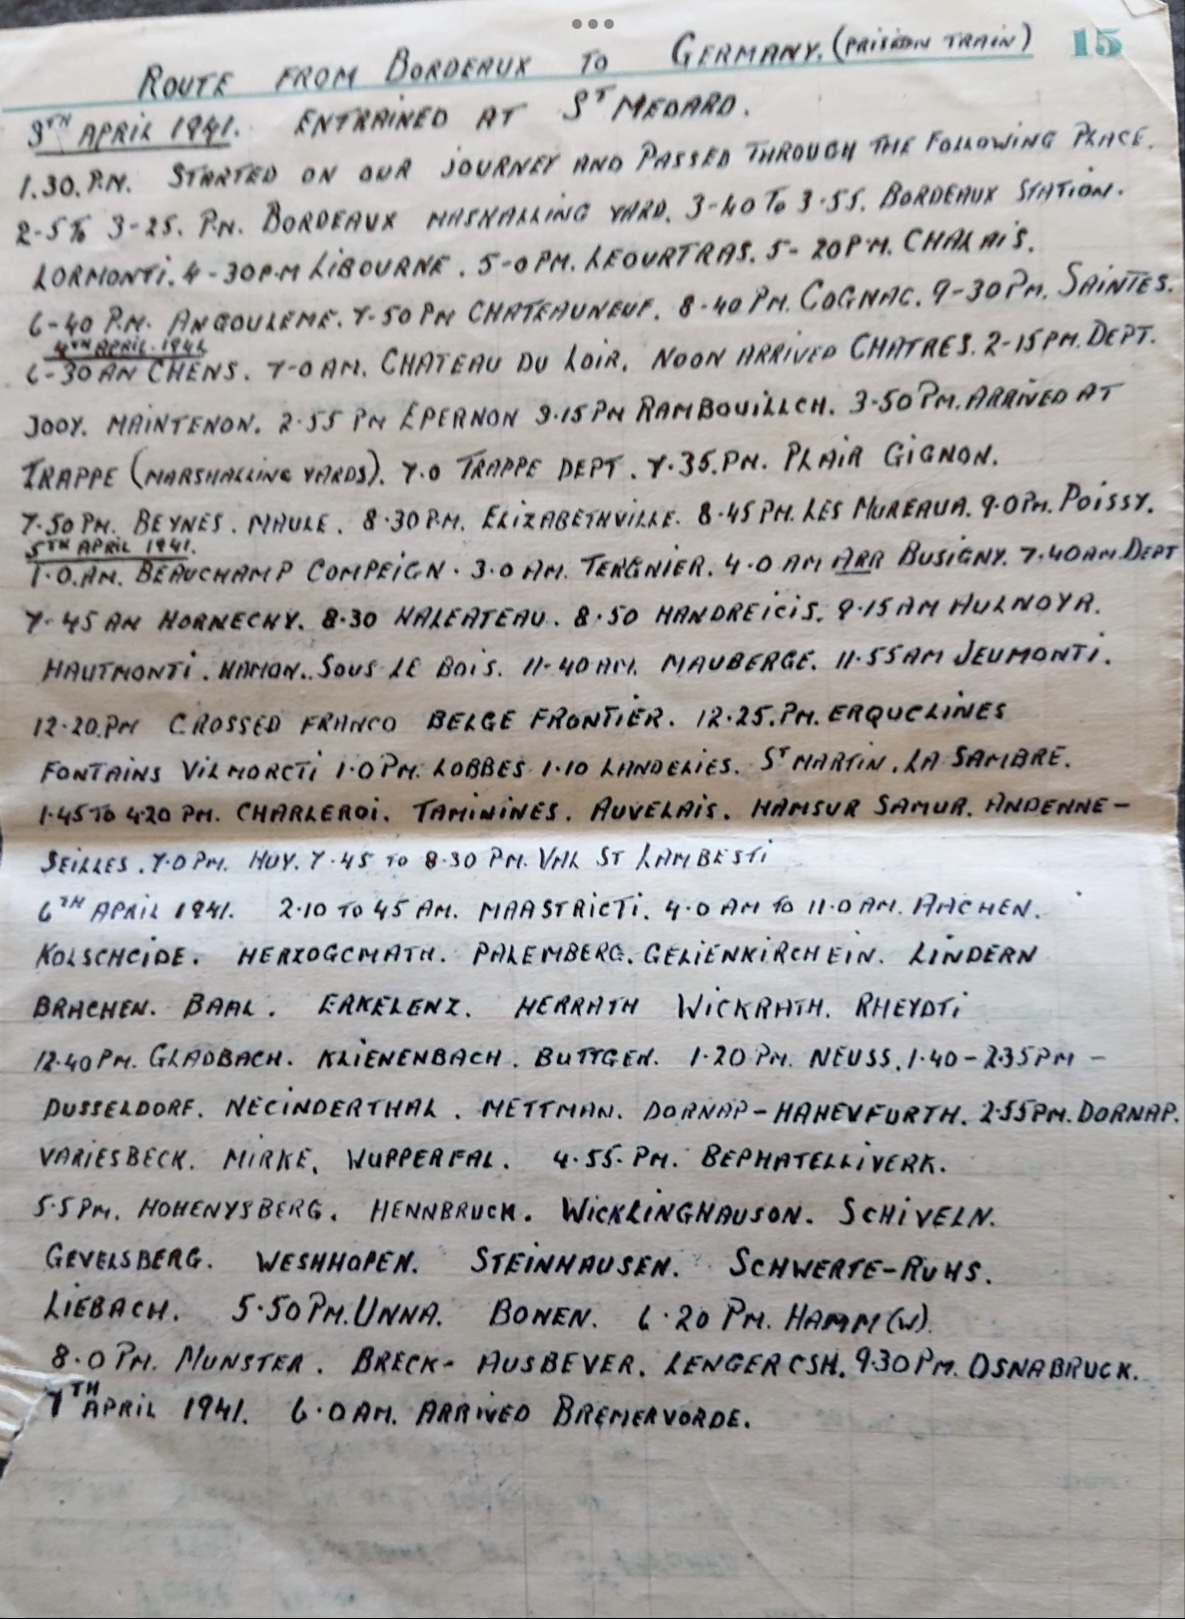 ROUTE FROM BORDEAUX TO GERMANY. (PRISION TRAIN) 15
3TH APRIL 1941. ENTRAINED AT ST MEDARD.
1.30. P.M. STARTED ON OUR JOURNEY AND PASSED THROUGH THE FOLLOWING PLACE.
2-5 TO 3-25. P.M. BORDEAUX MASHALLING YARD. 3-40 TO 3-55. BORDEAUX STATION.
LORMONTI. 4-30 P.M LIBOURNE. 5-0 PM. LEOURTRAS. 5-20 P.M. CHALAIS.
6-40 P.M. ANGOULEME. 7-50 PM CHATEAUNEUF. 8-40 PM. COGNAC. 9-30 PM. SAINTES.
4TH APRIL. 1941
6-30 AM CHENS. 7-0 AM. CHATEAU DU LOIR. NOON ARRIVED CHATRES. 2-15 PM. DEPT.
JOOY. MAINTENON. 2.55 PM EPERNON 3.15 PM RAMBOUILLCH. 3-50 PM. ARRIVED AT
TRAPPE (MARSHALLING YARDS). 7.0 TRAPPE DEPT. 7.35. PM. PLAIR GIGNON.
7.50 PM. BEYNES. MAULE. 8.30 P.M. ELIZABETHVILLE. 8.45 PM. LES MUREAUA. 9.0 PM. POISSY.
5TH APRIL 1941.
1.0. AM. BEAUCHAMP COMPEIGN. 3.0 AM. TERGNIER. 4.0 AM ARR BUSIGNY. 7.40 AM. DEPT
7-45 AM HORNECHY. 8.30 HALEATEAU. 8.50 HANDREICIS. 9.15 AM AULNOYA.
HAUTMONTI. HAMON. SOUS LE BOIS. 11-40 AM. MAUBERGE. 11.55 AM JEUMONTI.
12.20. PM CROSSED FRANCO BELGE FRONTIER. 12.25. PM. ERQUCLINES
FONTAINS VILMORCTI 1.0 PM. LOBBES 1.10 LANDELIES. ST MARTIN. LA SAMBRE.
1.45 TO 4.20 PM. CHARLEROI. TAMININES. AUVELAIS. HAMSUR SAMUR. ANDENNE-
SEILLES. 7.0 PM. HUY. 7.45 TO 8.30 PM. VAL ST LAMBESTI
6TH APRIL 1941. 2.10 TO 45 AM. MAASTRICTI. 4.0 AM TO 11.0 AM. AACHEN.
KOLSCHCIDE. HERZOGCMATH. PALEMBERG. GELIENKIRCHEIN. LINDERN
BRACHEN. BAAL. ERKELENZ. HERRATH WICKRATH. RHEYDTI
12.40 PM. GLADBACH. KLIENENBACH. BUTTGEN. 1.20 PM. NEUSS. 1.40 - 2.35 PM -
DUSSELDORF. NECINDERTHAL. METTMAN. DORNAP-HAHEVFURTH. 2.55 PM. DORNAP.
VARIESBECK. MIRKE. WUPPERFAL. 4.55. PM. BEPMATELLIVERK.
5.5 PM. HOHENYSBERG. HENNBRUCK. WICKLINGHAUSON. SCHIVELN.
GEVELSBERG. WESHHOPEN. STEINHAUSEN. SCHWERTE-RUHS.
LIEBACH. 5.50 PM. UNNA. BONEN. 6.20 PM. HAMM (W).
8.0 PM. MUNSTER. BRECK- AUSBEVER. LENGERCSH. 9.30 PM. OSNABRUCK.
7TH APRIL 1941. 6.0 AM. ARRIVED BREMERVORDE.